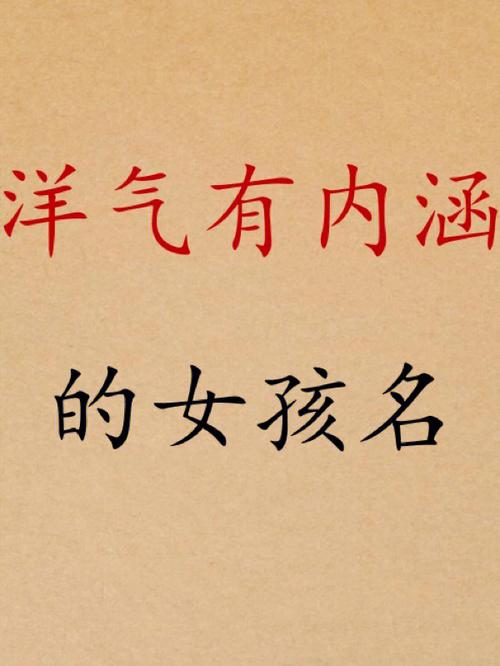 洋气有内涵
的女孩名